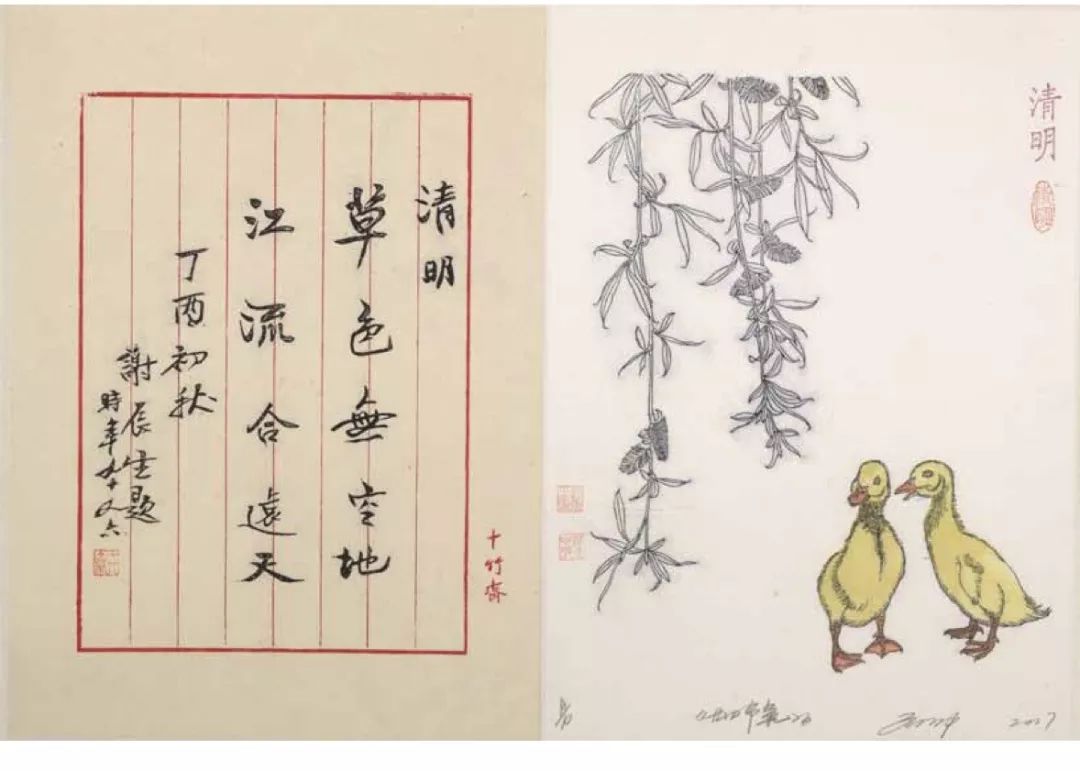 清明
草色無空地
江流合遠天
丁酉初秋
謝辰生題
時年九十又六
十竹齋
清明
2017